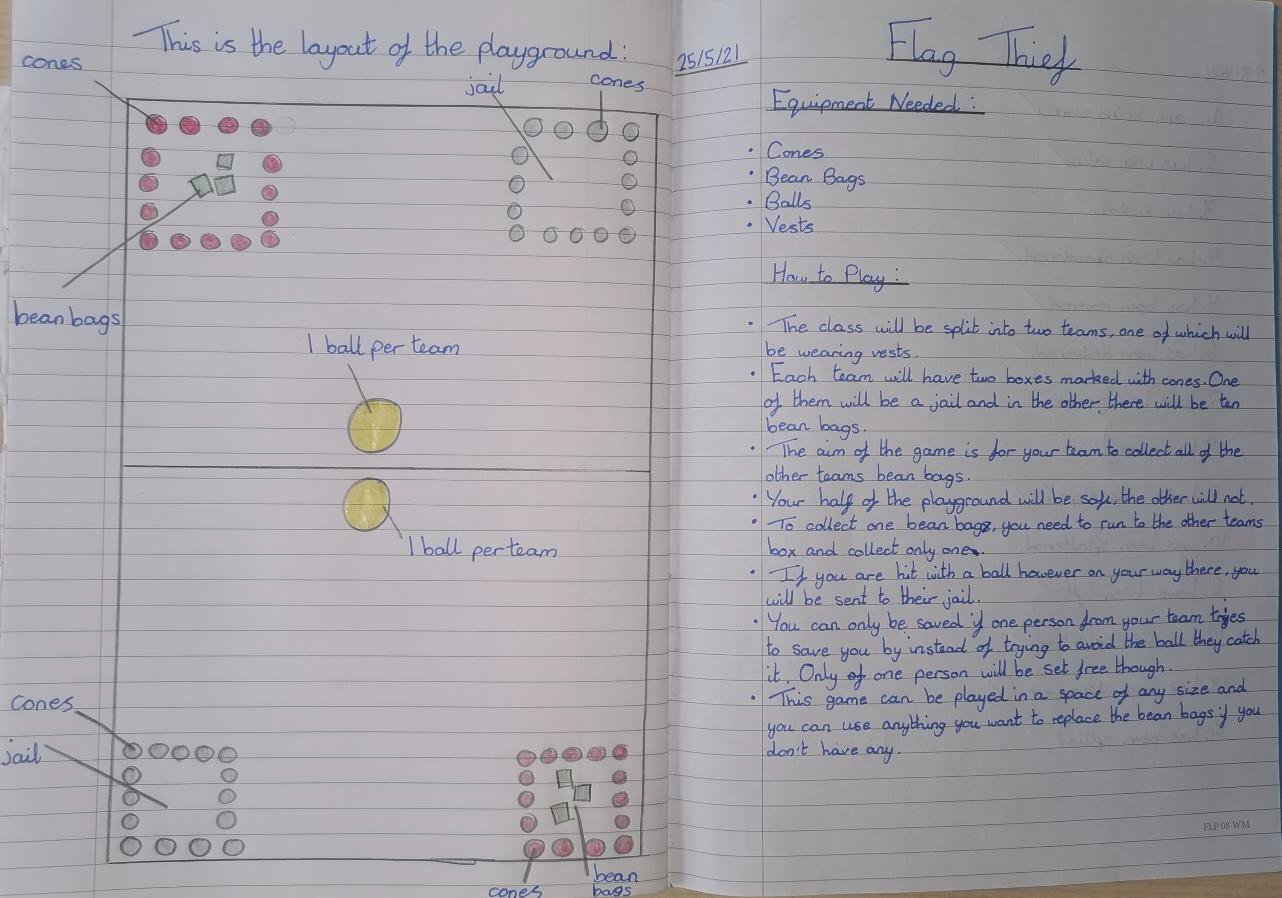 This is the layout of the playground:
cones
jail
cones
bean bags
1 ball per team
1 ball per team
cones
jail
cones
bean
bags
25/5/21
Flag Thief
Equipment Needed:
• Cones
• Bean Bags
• Balls
• Vests
How to Play:
• The class will be split into two teams, one of which will
be wearing vests.
• Each team will have two boxes marked with cones. One
of them will be a jail and in the other there will be ten
bean bags.
• The aim of the game is for your team to collect all of the
other teams bean bags.
• Your half of the playground will be safe, the other will not.
• To collect one bean bag, you need to run to the other teams
box and collect only one.
• If you are hit with a ball however on your way there, you
will be sent to their jail.
• You can only be saved if one person from your team tries
to save you by instead of trying to avoid the ball they catch
it. Only of one person will be set free though.
• This game can be played in a space of any size and
you can use anything you want to replace the bean bags if you
don't have any.
FLP 08 WM